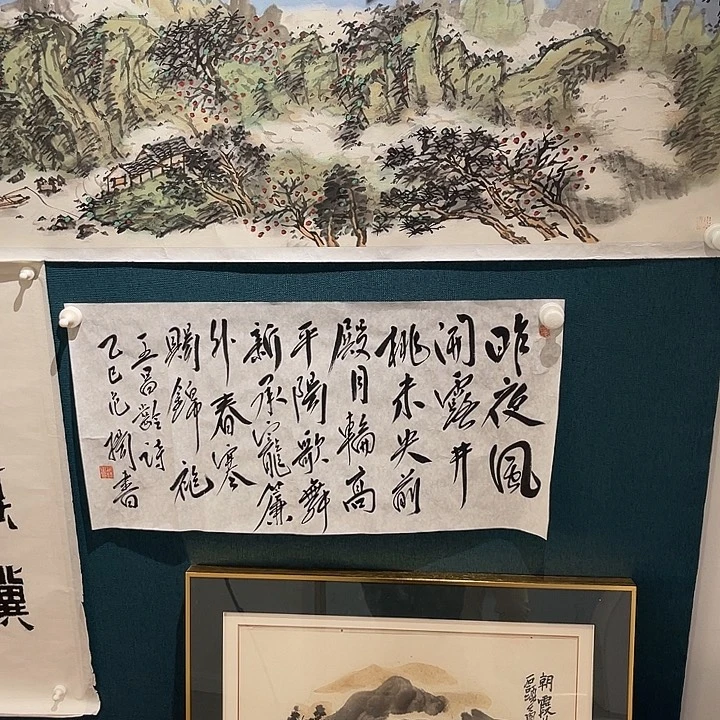 昨夜風
開露井
桃未央前
殿月輪高
平陽歌舞
新承寵簾
外春寒
賜錦袍
王昌齡詩
乙巳范閣書
朝霞